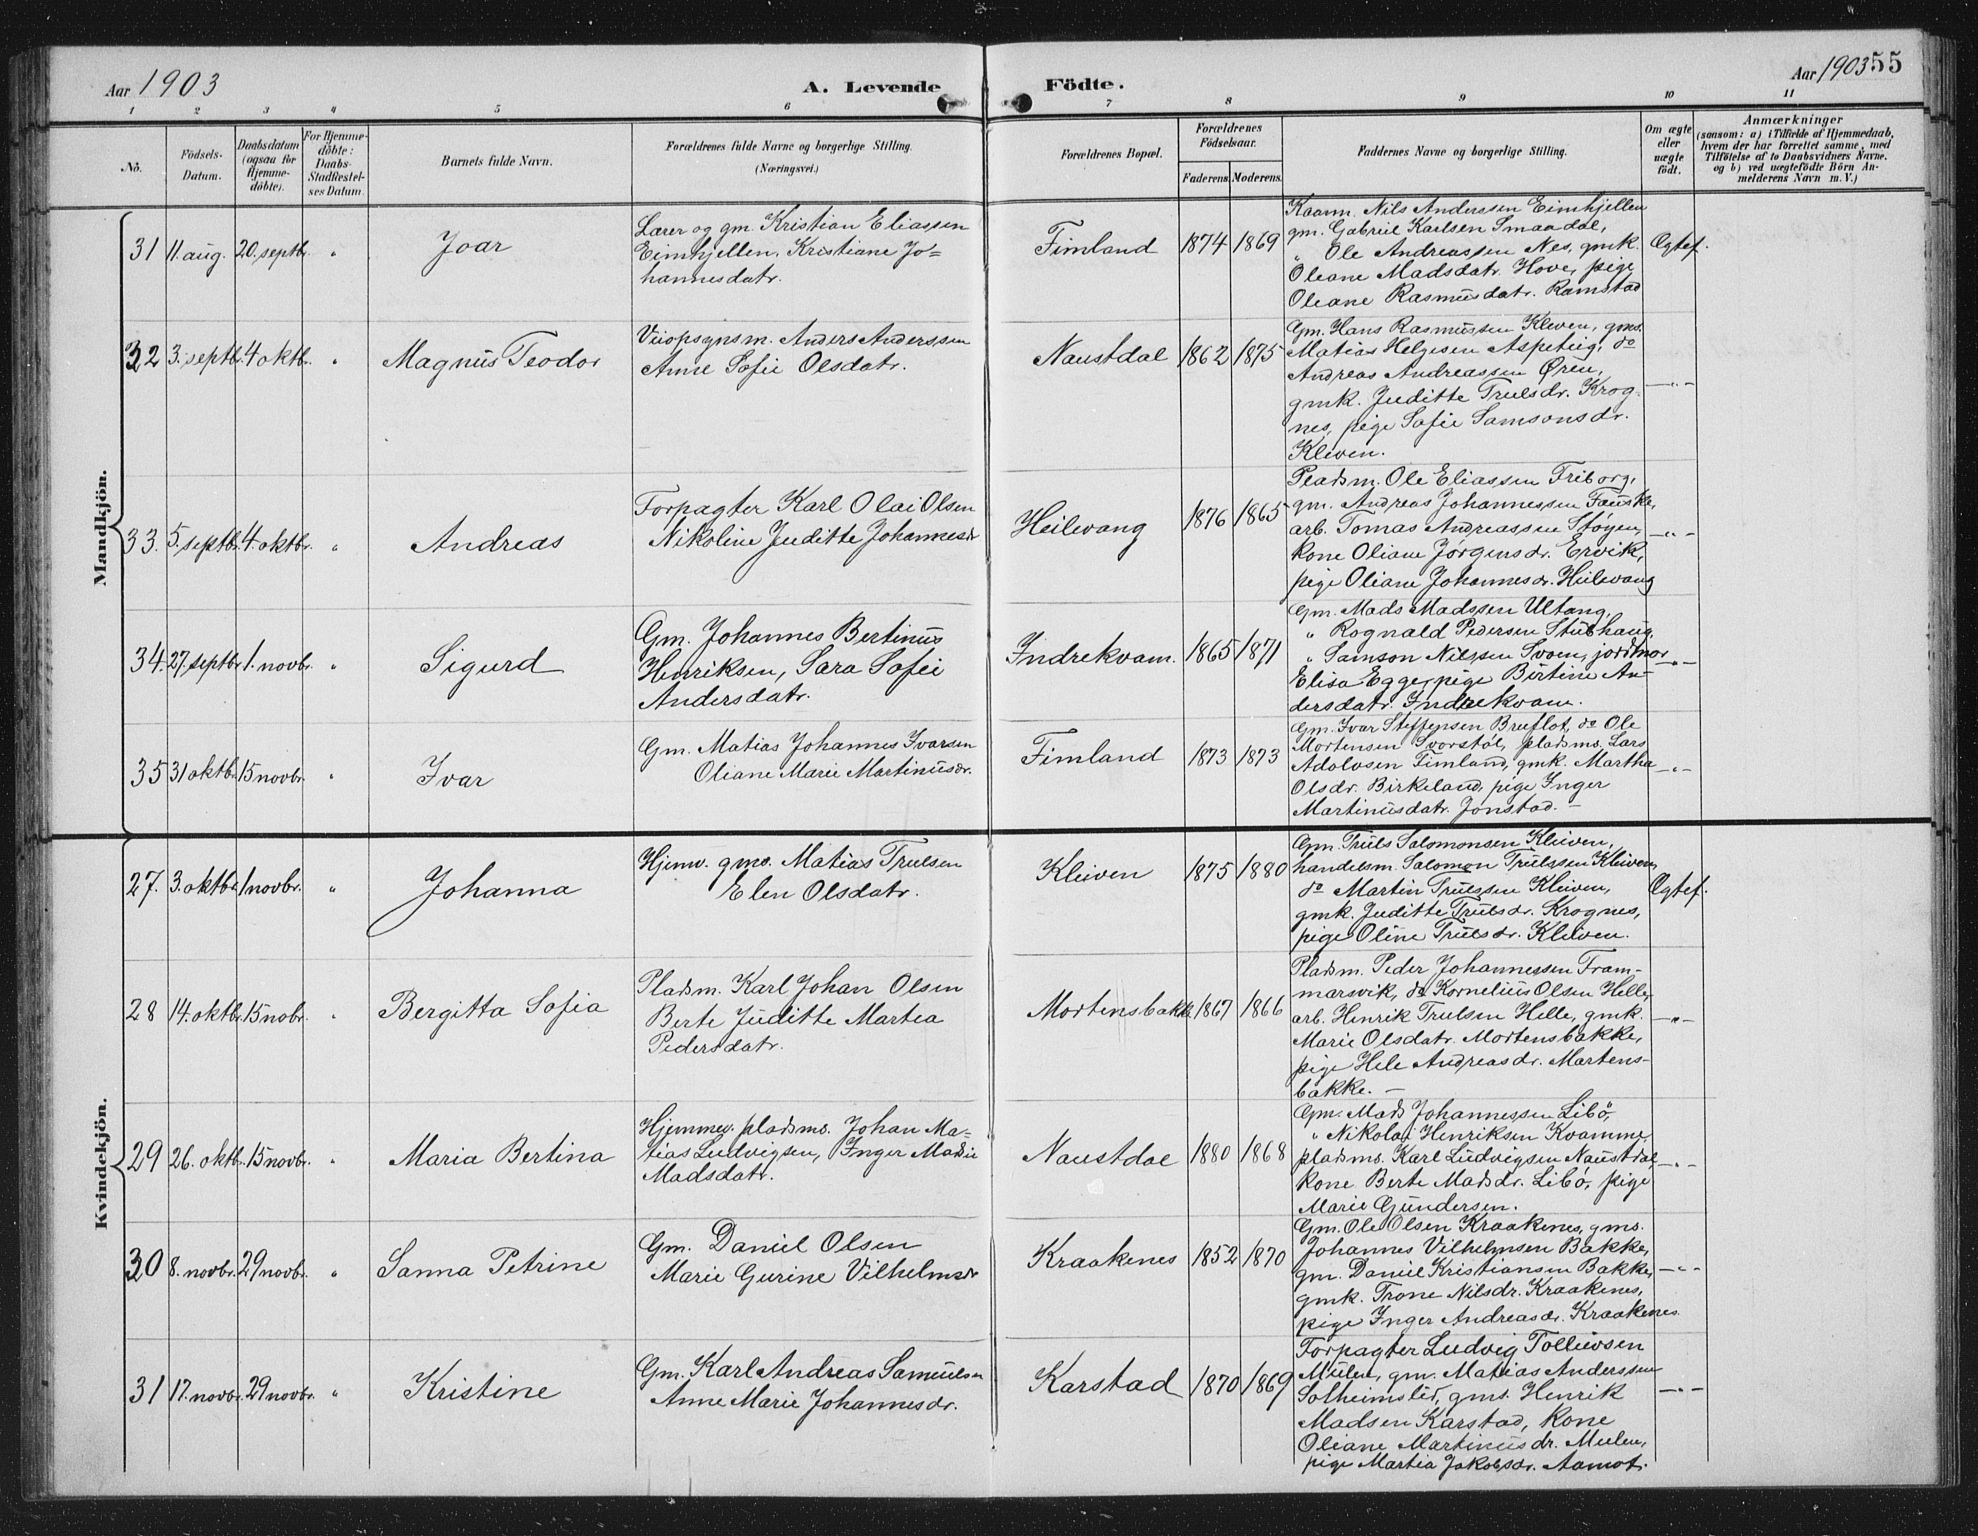 Aar 1903
A. Levende
Födte.
Aar 1903 55
1 2 3 4 5 6 7 8 9 10 11
No.
Födsels-
Datum.
Daabsdatum
(ogsaa for
Hjemme-
döbte).
For Hjemme-
döbte:
Daabs-
Stadfæstel-
ses Datum.
Barnets fulde Navn.
Forældrenes fulde Navne og borgerlige Stilling.
(Næringsvei.)
Forældrenes Bopæl.
Forældrenes
Födselsaar.
Faderens. Moderens.
Faddernes Navne og borgerlige Stilling.
Om ægte
eller
uægte
födt.
Anmærkninger
(saasom: a) i Tilfælde af Hjemmedaab,
hvem der har forrettet samme, med
Tilföielse af to Daabsvidners Navne,
og b) ved uægtefödte Börn An-
melderens Navn m. V.)
Mandkjön.
31 11. aug. 20. septbr. " Joar
Lærer og gm. Kristian Eliassen
Eimhjellen, Kristiane Jo=
hannesdatr.
Fimland 1874 1869
Kaarm. Nils Anderssen Eimhjellen
gm. Gabriel Karlsen Smaadal,
" Ole Andreassen Nes, gmk.
Oleane Madsdatr. Hove, pige
Oleane Rasmusdatr. Ramstad
Egtef.
32 3. septbr. 4 oktbr. " Magnus Teodor
Veiopsynsm. Anders Anderssen
Anne Sofie Olsdatr.
Naustdal 1862 1875
Gm. Hans Rasmussen Kleven, gms.
Matias Helgesen Aspeteig, do
Andreas Andreassen Øren,
gmk. Juditte Trulsdr. Krog-
nes, pige Sofie Samsonsdr.
Kleven.
—"—
33. 5. septbr. 4. oktbr. " Andreas
Forpagter Karl Olai Olsen
Nikoline Juditte Johannesdr
Heilevang 1876 1865
Pladsm. Ole Eliassen Friborg,
gm. Andreas Johannessen Fauske,
arb. Tomas Andreassen Støyen,
kone Oliane Jørgensdr. Ervik,
pige Oliane Johannesdr. Heilevang
—"—
34. 27. septbr. 1. novbr. " Sigurd
Gm. Johannes Bertinus
Henriksen, Sara Sofie
Andersdatr.
Indrekvam. 1865 1871
Gm. Mads Madssen Ultang,
" Rognald Pedersen Stubhaug,
" Samson Nilssen Svoen, jordmor
Elisa Egge, pige Birtine An-
dersdatr. Indrekvam.
—"—
35 31 oktbr. 15 novbr. " Ivar
Gm. Matias Johannes Ivarsen
Oliane Marie Martinusdr.
Fimland 1873 1873
Gm. Ivar Steffensen Bruflot, do Ole
Mortensen Svorstøl, pladsms. Lars
Adolvsen Fimland, gmk. Martha
Olsdr. Birkeland, pige Inger
Martinusdatr. Jonstad. —
—"—
Kvindekjön.
27. 3. oktbr. 1 novbr. " Johanna
Hjemv. gms. Matias Trulsen
Elen Olsdatr.
Kleiven 1875 1880
Gm. Truls Salomonsen Kleiven,
handelsm. Salomon Trulssen Kleiven
do Martin Trulssen Kleiven,
gmk. Juditte Trulsdr. Krognes,
pige Oline Trulsdr. Kleiven.
Egtef.
28 14. oktbr. 15 nobr. " Bergitta Sofia
Pladsm. Karl Johan Olsen
Berte Juditte Martea
Pedersdatr.
Mortensbakk. 1867 1866
Pladsm. Peder Johannessen Fram-
marsvik, do Kornelius Olsen Helle,
arb. Henrik Trulsen Helle, gmk.
Marie Olsdatr. Mortensbakke,
pige Hele Andreasdr. Martens-
bakke. —
—"—
29 26. oktbr. 15 novbr. " Maria Bertina
Hjemmev. pladsms. Johan Ma=
tias Ludvigsen, Inger Marie
Madsdatr.
Naustdal 1880 1868
Gm. Mads Johannessen Libø,
" Nikolai Henriksen Kvamme,
pladsms. Karl Ludvigsen Naustdal,
kone Berte Madsdr. Libø, pige
Marie Gundersen.
—"—
30 8. novbr. 29 novbr. " Sanna Petrine
Gm. Daniel Olsen
Marie Gurine Vilhelmsdr
Kraakenes 1852 1870
Gm. Ole Olsen Kraakenes, gms.
Johannes Vilhelmsen Bakke,
gm. Daniel Kristiansen Bakke,
gmk. Trone Nilsdr. Kraakenes,
pige Inger Andreasdr. Kraakenes.
—"—
31 17. novbr. 29 novbr. " Kristine
Gm. Karl Andreas Samuelsen
Anne Marie Johannesdr.
Karstad 1870 1869
Forpagter Ludvig Tollevsen
Mulen, gm. Matias Anderssen
Solheimslid, gms. Henrik
Madsen Karstad, kone
Oliane Martinusdr. Mulen,
pige Martia Jakobsdr. Aamot.
—"—